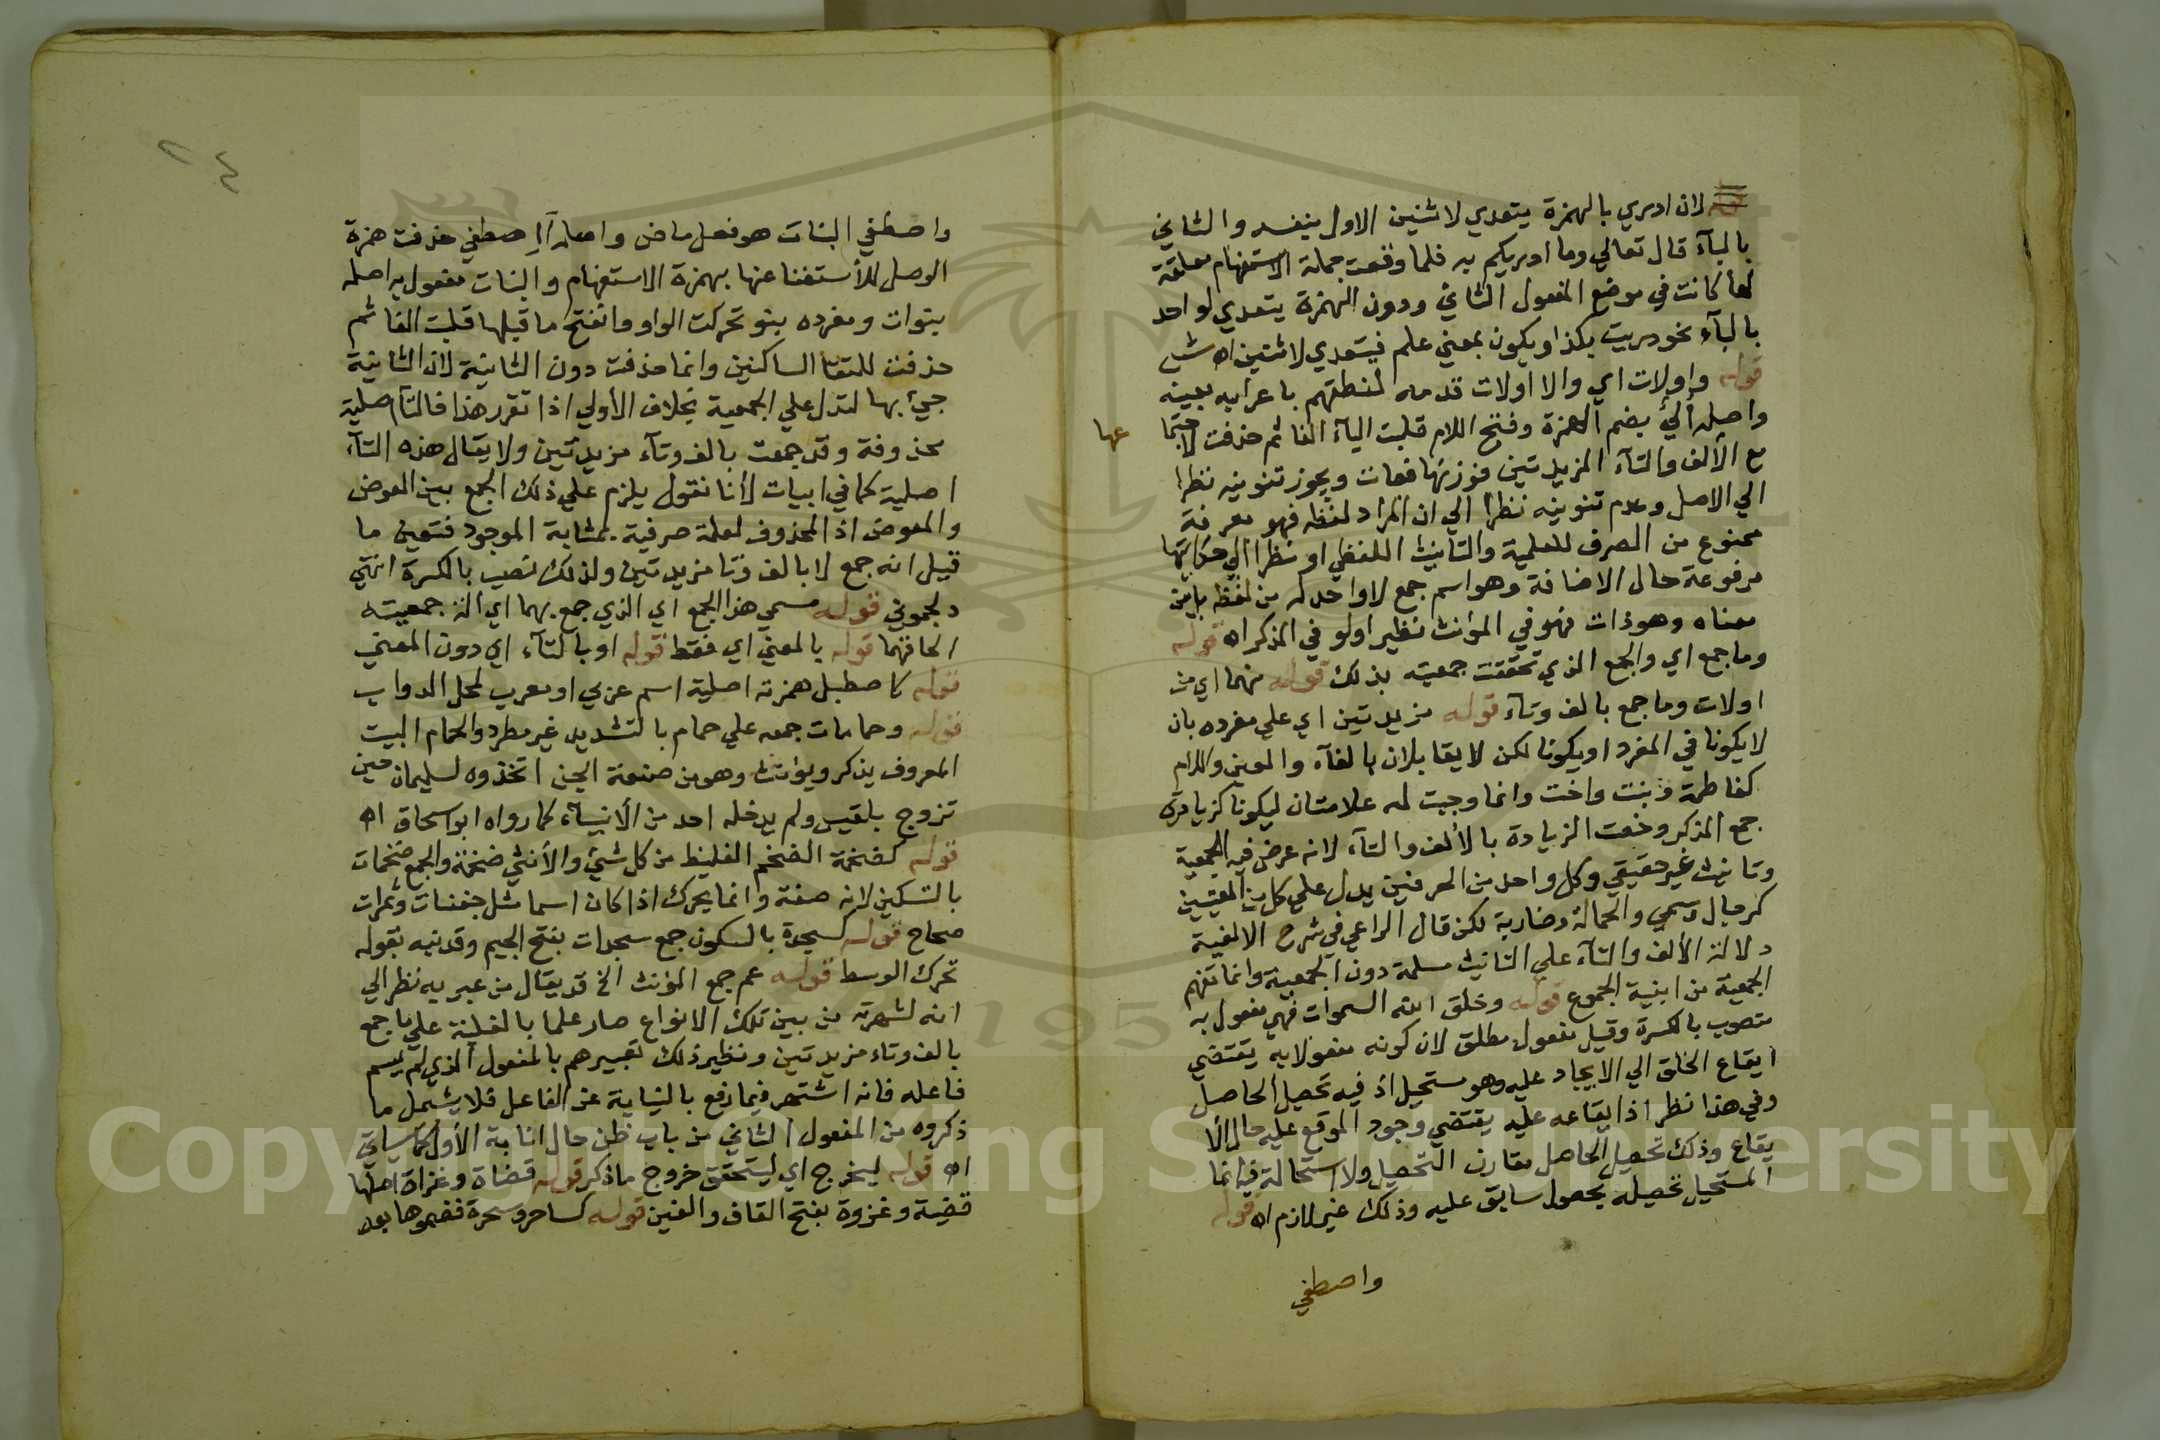 لان ادري بالهمزة يتعدي لاثنين الاول بنفسه والثاني
بالباء قال تعالي وما ادريكم به فلما وقعت جملة الاستفهام معلقة
لها كانت في موضع المفعول الثاني ودون الهمزة يتعدي لواحد
بالبآء نحو دريت بكذا ويكون بمعني علم فيتعدي لاثنين اه ش
قوله واولات اي والا اولات قدمه لنطقهم باعرابه بعينه
واصله ألَيُ بضم الهمزة وفتح اللام قلبت اليآء الفا ثم حذفت لاجتما
عها
مع الألف والتآء المزيدتين فوزنها فعات ويجوز تنوينه نظرا
الي الاصل وعدم تنوينه نظرا الي ان المراد لفظه فهو معرفة
ممنوع من الصرف للعلمية والتانيث اللفظي او نظرا الي حكايتها
مرفوعة حال الاضافة وهو اسم جمع لا واحد له من لفظه بل من
معناه وهو ذات فهو في المؤنث نظير اولو في المذكر اه قوله
وما جمع اي والجمع الذي تحققت جمعيته بذلك قوله منهما اي من
اولات وما جمع بالف وتاء قوله مزيدتين اي علي مفرده بان
لا يكونا في المفرد او يكونا لكن لا يقابلان بالفآء والعين واللام
كفاطمة وبنت واخت وانما وجبت له علامتان ليكونا كزيادة
جمع المذكر وخصت الزيادة بالألف والتآء لانه عرض فيه الجمعية
وتانيث غير حقيقي وكل واحد من الحرفين يدل علي كل من المعنيين
كرجال وسمي والحمالة وضاربة لكن قال الراعي في شرح الالفية
دلالة الألف والتآء علي التانيث مسلمة دون الجمعية وانما تفهم
الجمعية من ابنية الجموع قوله وخلق الله السموات فهي مفعول به
منصوب بالكسرة وقيل مفعول مطلق لان كونه مفعولا به يقتضي
ايقاع الخلق الي الايجاد عليه وهو مستحيل اذ فيه تحصيل الحاصل
وفي هذا نظر اذ ايقاعه عليه يقتضي وجود الموقع عليه حال الا
يقاع وذلك تحصيل الحاصل مقارن التحصيل ولا استحالة فيه انما
المستحيل تحصيله بحصول سابق عليه وذلك غير لازم اه قوله
واصطفي
٢٤
واصطفي البنات هو فعل ماض واصله أاِصطفي حذفت همزة
الوصل للأستغنا عنها بهمزة الاستفهام والبنات مفعول به اصله
بنوات ومفرده بنو تحركت الواو وانفتح ما قبلها قلبت الفا ثم
حذفت للتقا الساكنين وانما حذفت دون الثانية لان الثانية
جيئ بها لتدل علي الجمعية بخلاف الأولي اذا تقرر هذا فالتآء اصلية
محذوفة وقد جمعت بالف وتآء مزيدتين ولا يقال هذه التآء
اصلية كما في ابيات لأنا نقول يلزم علي ذلك الجمع بين العوض
والمعوض اذ المحذوف لعلة صرفية بمثابة الموجود فتعين ما
قيل انه جمع لا بالف وتا مزيدتين ولذلك نصب بالكسرة انتهي
دلجموني قوله مسمي هذا الجمع اي الذي جمع بهما اي الة جمعيته
الحاقهما قوله بالمعني اي فقط قوله او بالتآء اي دون المعني
قوله كاصطبل همزته اصلية اسم عربي او معرب لمحل الدواب
قوله وحمامات جمعه علي حمام بالتشديد غير مطرد والحمام البيت
المعروف يذكر ويؤنث وهو من صنعة الجن اتخذوه لسليمان حين
تزوج بلقيس ولم يدخله احد من الأنبيآء كما رواه ابو اسحاق اه
قوله كضخمة الضخم الغليظ من كل شئ والأنثي ضخمة والجمع ضخمات
بالتسكين لانه صفة وانما يحرك اذا كان اسما مثل جفنات وثمرات
صحاح قوله كسجدة بالسكون جمع سجدات بفتح الجيم وقد نبه بقوله
تحرك الوسط قوله عم جمع المؤنث الخ قد يقال من عبر به نظر الي
انه لشهرته من بين تلك الانواع صار علما بالغلبة علي ما جمع
بالف وتاء مزيدتين ونظير ذلك تعبيرهم بالمفعول الذي لم يسم
فاعله فانه اشتهر فيما رفع بالنيابة عن الفاعل فلا يشمل ما
ذكروه من المفعول الثاني من باب ظن حال انابة الأول كما سياتي
اه قوله ليخرج اي ليتحقق خروج ما ذكر قوله قضاة وغزاة اصلها
قضية وغزوة بفتح القاف والغين قوله كساحر وسحرة فضموها بعد
Copyright © King Saud University
195